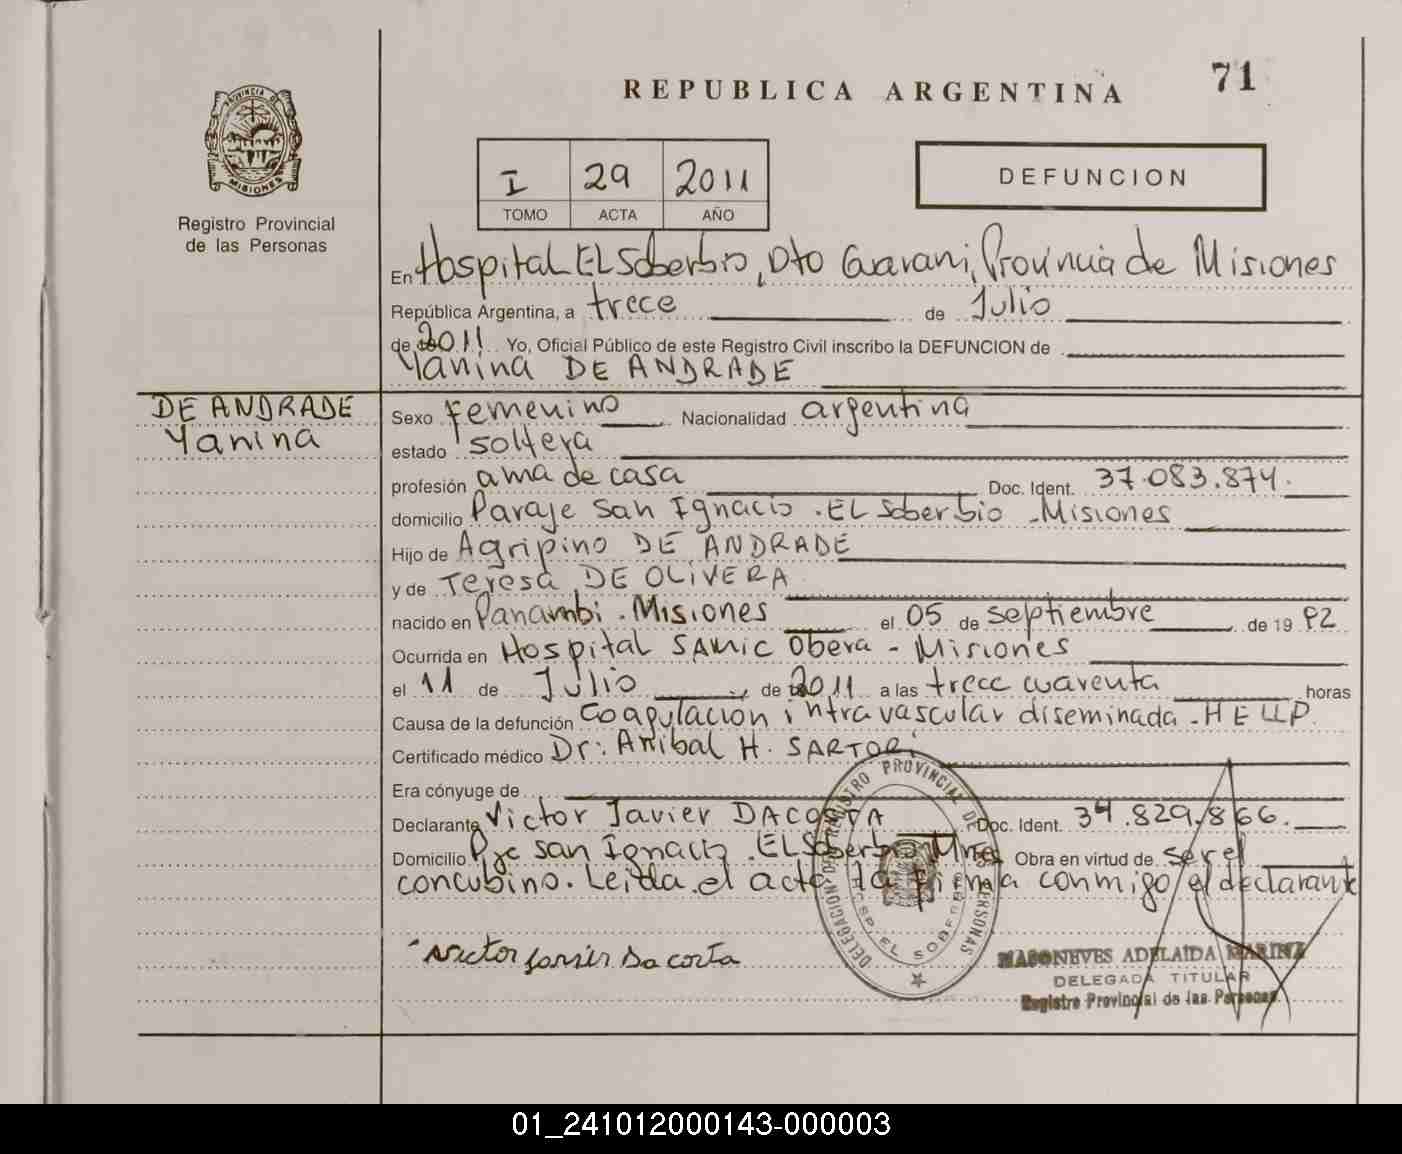 71
REPUBLICA ARGENTINA
PROVINCIA DE
MISIONES
Registro Provincial
de las Personas
I 29 2011
TOMO ACTA AÑO
DEFUNCION
En Hospital EL Soberbio, Dto Guarani, Provincia de Misiones
República Argentina, a trece de Julio
de 2011 Yo, Oficial Público de este Registro Civil inscribo la DEFUNCION de
Yanina DE ANDRADE
DE ANDRADE
Yanina
Sexo femenino Nacionalidad argentina
estado soltera
profesión ama de casa Doc. Ident. 37.083.874.
domicilio Paraje San Ignacio . EL Soberbio - Misiones
Hijo de Agripino DE ANDRADE
y de Teresa DE OLIVERA
nacido en Panambi . Misiones el 05 de septiembre de 19 92
Ocurrida en Hospital SAMIC Obera - Misiones
el 11 de Julio de 2011 a las trece cuarenta horas
Causa de la defunción Coagulacion intravascular diseminada - HELLP
Certificado médico Dr: Anibal H. SARTORI
Era cónyuge de
Declarante Victor Javier DACOSTA Doc. Ident. 34.829.866.
Domicilio Pje San Ignacio . EL Soberbio Mnes Obra en virtud de ser el
concubino. Leida el acta la firma conmigo el declarante
Victor Javier Da costa
DELEGACION DEL REGISTRO PROVINCIAL DE LAS PERSONAS
HOSP. EL SOBERBIO
MASONEVES ADELAIDA MARINA
DELEGADA TITULAR
Registro Provincial de las Personas
01_241012000143-000003